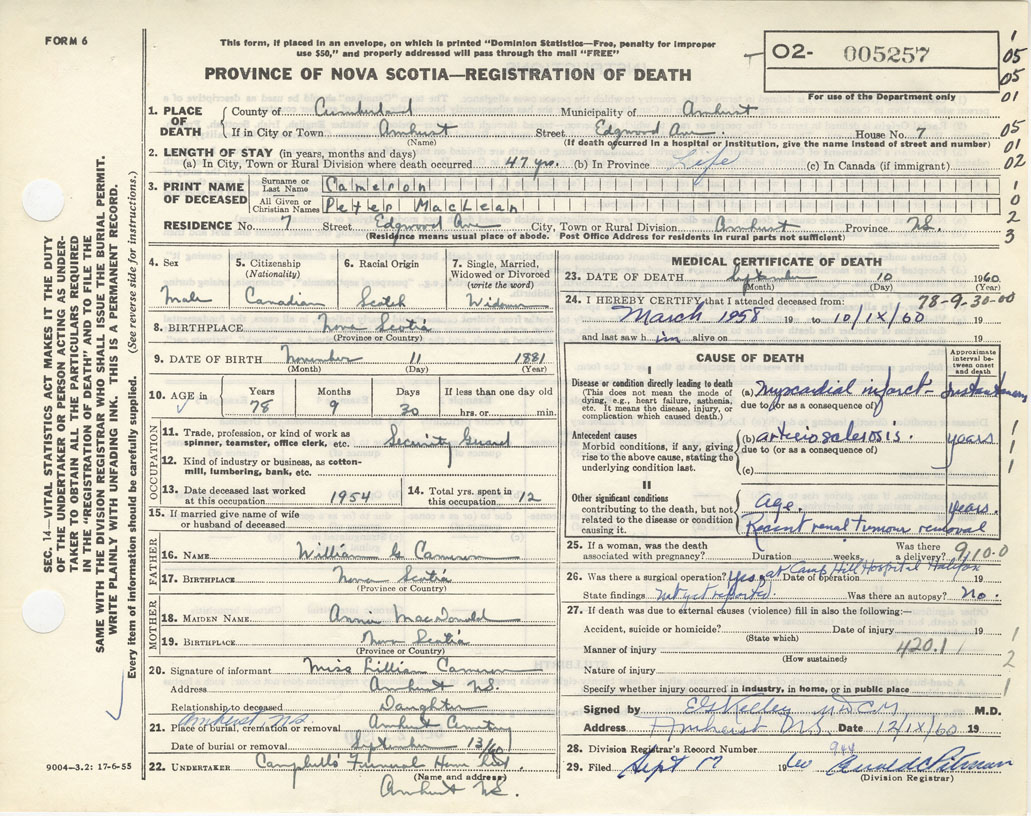 FORM 6
This form, if placed in an envelope, on which is printed "Dominion Statistics—Free, penalty for improper
use $50," and properly addressed will pass through the mail "FREE"
PROVINCE OF NOVA SCOTIA—REGISTRATION OF DEATH
02- 005257
For use of the Department only
1
05
05
01
05
01
02
1
0
2
3
SEC. 14—VITAL STATISTICS ACT MAKES IT THE DUTY
OF THE UNDERTAKER OR PERSON ACTING AS UNDER-
TAKER TO OBTAIN ALL THE PARTICULARS REQUIRED
IN THE "REGISTRATION OF DEATH" AND TO FILE THE
SAME WITH THE DIVISION REGISTRAR WHO SHALL ISSUE THE BURIAL PERMIT.
WRITE PLAINLY WITH UNFADING INK. THIS IS A PERMANENT RECORD.
Every item of information should be carefully supplied. (See reverse side for instructions.)
1. PLACE OF DEATH County of Cumberland Municipality of Amherst
If in City or Town Amherst Street Edgwood Ave. House No. 7
(Name) (If death occurred in a hospital or institution, give the name instead of street and number)
2. LENGTH OF STAY (in years, months and days)
(a) In City, Town or Rural Division where death occurred 47 yrs. (b) In Province Life (c) In Canada (if immigrant)
3. PRINT NAME OF DECEASED Surname or Last Name Cameron
All Given or Christian Names Peter MacLean
RESIDENCE No. 7 Street Edgwood Ave City, Town or Rural Division Amherst Province N.S.
(Residence means usual place of abode. Post Office Address for residents in rural parts not sufficient)
4. Sex
Male
5. Citizenship
(Nationality)
Canadian
6. Racial Origin
Scotch
7. Single, Married,
Widowed or Divorced
(write the word)
Widower
8. BIRTHPLACE Nova Scotia
(Province or Country)
9. DATE OF BIRTH November 11 1881
(Month) (Day) (Year)
10. AGE in Years Months Days If less than one day old
78 9 30 hrs. or min.
OCCUPATION
11. Trade, profession, or kind of work as
spinner, teamster, office clerk, etc. Security Guard
12. Kind of industry or business, as cotton-
mill, lumbering, bank, etc.
13. Date deceased last worked
at this occupation 1954
14. Total yrs. spent in
this occupation 12
15. If married give name of wife
or husband of deceased
FATHER
16. NAME William G Cameron
17. BIRTHPLACE Nova Scotia
(Province or Country)
MOTHER
18. MAIDEN NAME Annie MacDonald
19. BIRTHPLACE Nova Scotia
(Province or Country)
20. Signature of informant Miss Lillian Cameron
Address Amherst N.S.
Relationship to deceased Daughter
Amherst, N.S.
21. Place of burial, cremation or removal Amherst
Date of burial or removal September 13/60
22. UNDERTAKER Campbell's Funeral Home Ltd.
(Name and address)
Amherst N.S.
9004-3.2: 17-6-55
MEDICAL CERTIFICATE OF DEATH
23. DATE OF DEATH September 10 1960
(Month) (Day) (Year)
24. I HEREBY CERTIFY that I attended deceased from: 78-9-30-00
March 1958 19 to 10/IX/60 19
and last saw him alive on 19
CAUSE OF DEATH
Approximate
interval be-
tween onset
and death
I
Disease or condition directly leading to death
(This does not mean the mode of
dying, e.g., heart failure, asthenia,
etc. It means the disease, injury, or
complication which caused death.)
(a) myocardial infarct - Instantaneous
due to (or as a consequence of)
Antecedent causes
Morbid conditions, if any, giving
rise to the above cause, stating the
underlying condition last.
(b) arteriosclerosis. years
due to (or as a consequence of)
(c)
II
Other significant conditions
contributing to the death, but not
related to the disease or condition
causing it.
Age. years.
Recent renal tumour removal
1
1
1
25. If a woman, was the death
associated with pregnancy? Duration weeks, Was there
a delivery? 9110.0
26. Was there a surgical operation? Yes, at Camp Hill Hospital Halifax Date of operation 19
State findings not yet reported. Was there an autopsy? No.
27. If death was due to external causes (violence) fill in also the following:—
Accident, suicide or homicide? Date of injury 19
(State which)
Manner of injury 420.1
(How sustained)
Nature of injury
Specify whether injury occurred in industry, in home, or in public place
1
2
1
Signed by M.D.C.M M.D.
Address Amherst N.S. Date 12/IX/60 19
28. Division Registrar's Record Number 944
29. Filed Sept 17 1960
(Division Registrar)